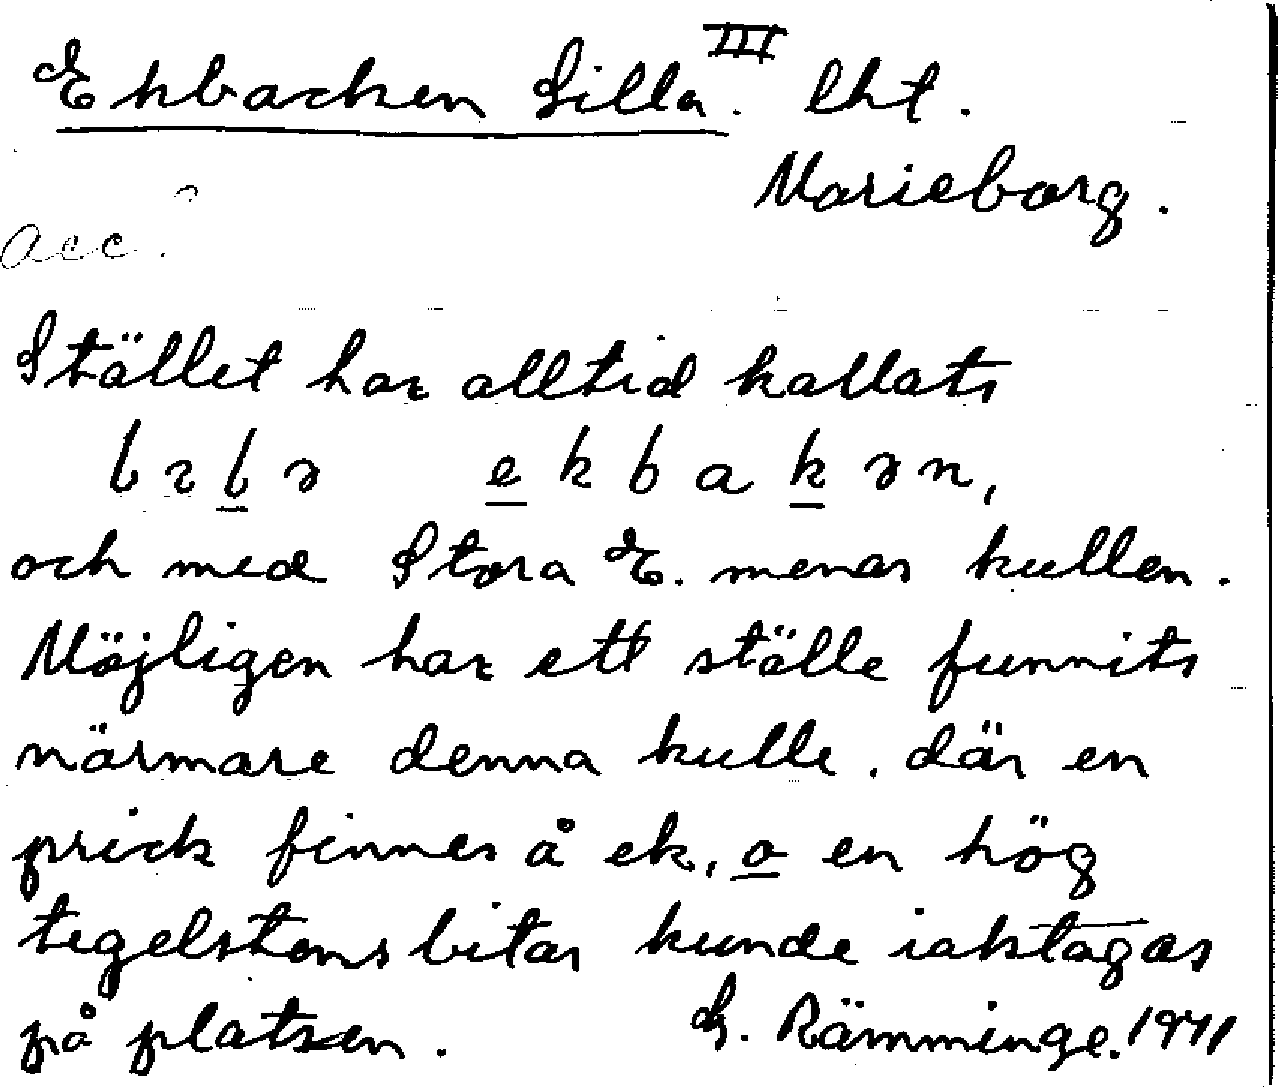 Ekbacken Lilla. III lht.
Marieborg.
acc.
Stället har alltid kallats
lɩlə ekbakən,
och med Stora E. menas kullen.
Möjligen har ett ställe funnits
närmare denna kulle, där en
prick finnes å ek, o en hög
tegelstensbitar kunde iakttagas
på platsen. G. Rämminge. 1971